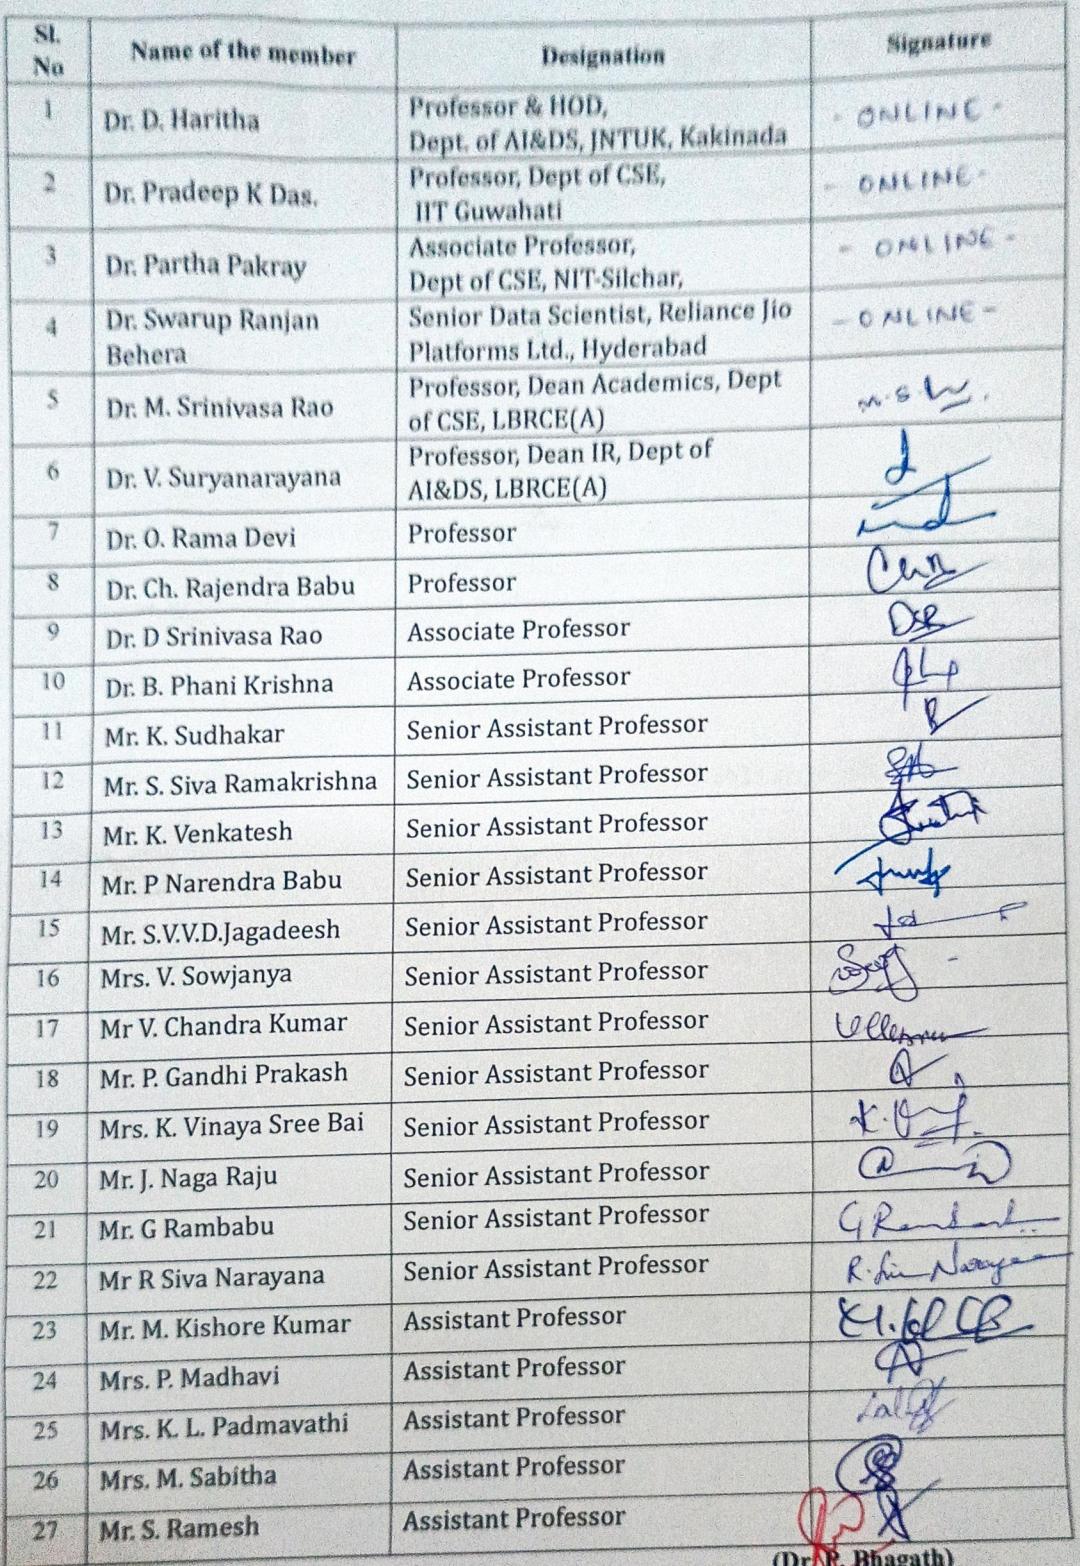 Sl. No Name of the member Designation Signature
1 Dr. D. Haritha Professor & HOD,
Dept. of AI&DS, JNTUK, Kakinada - ONLINE -
2 Dr. Pradeep K Das. Professor, Dept of CSE,
IIT Guwahati - ONLINE -
3 Dr. Partha Pakray Associate Professor,
Dept of CSE, NIT-Silchar, - ONLINE -
4 Dr. Swarup Ranjan Behera Senior Data Scientist, Reliance Jio
Platforms Ltd., Hyderabad - ONLINE -
5 Dr. M. Srinivasa Rao Professor, Dean Academics, Dept
of CSE, LBRCE(A)
6 Dr. V. Suryanarayana Professor, Dean IR, Dept of
AI&DS, LBRCE(A)
7 Dr. O. Rama Devi Professor
8 Dr. Ch. Rajendra Babu Professor
9 Dr. D Srinivasa Rao Associate Professor DSR
10 Dr. B. Phani Krishna Associate Professor
11 Mr. K. Sudhakar Senior Assistant Professor
12 Mr. S. Siva Ramakrishna Senior Assistant Professor
13 Mr. K. Venkatesh Senior Assistant Professor
14 Mr. P Narendra Babu Senior Assistant Professor
15 Mr. S.V.V.D.Jagadeesh Senior Assistant Professor
16 Mrs. V. Sowjanya Senior Assistant Professor
17 Mr V. Chandra Kumar Senior Assistant Professor
18 Mr. P. Gandhi Prakash Senior Assistant Professor
19 Mrs. K. Vinaya Sree Bai Senior Assistant Professor
20 Mr. J. Naga Raju Senior Assistant Professor
21 Mr. G Rambabu Senior Assistant Professor
22 Mr R Siva Narayana Senior Assistant Professor
23 Mr. M. Kishore Kumar Assistant Professor
24 Mrs. P. Madhavi Assistant Professor
25 Mrs. K. L. Padmavathi Assistant Professor
26 Mrs. M. Sabitha Assistant Professor
27 Mr. S. Ramesh Assistant Professor
(Dr. P. Bhagath)